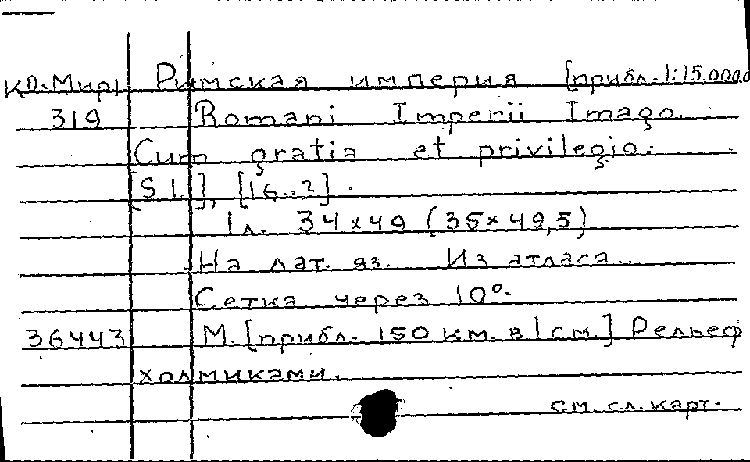 КП.Мир Римская империя [прибл. 1:15.000.0
319 Romani Imperii Imago.
Cum gratia et privilegio.
[S.l.], [16..?].
1 л. 34×49 (35×49,5)
На лат. яз. Из атласа.
Сетка через 10°.
36443 М. [прибл. 150 км. в 1 см.] Рельеф
холмиками.
см. сл. карт.